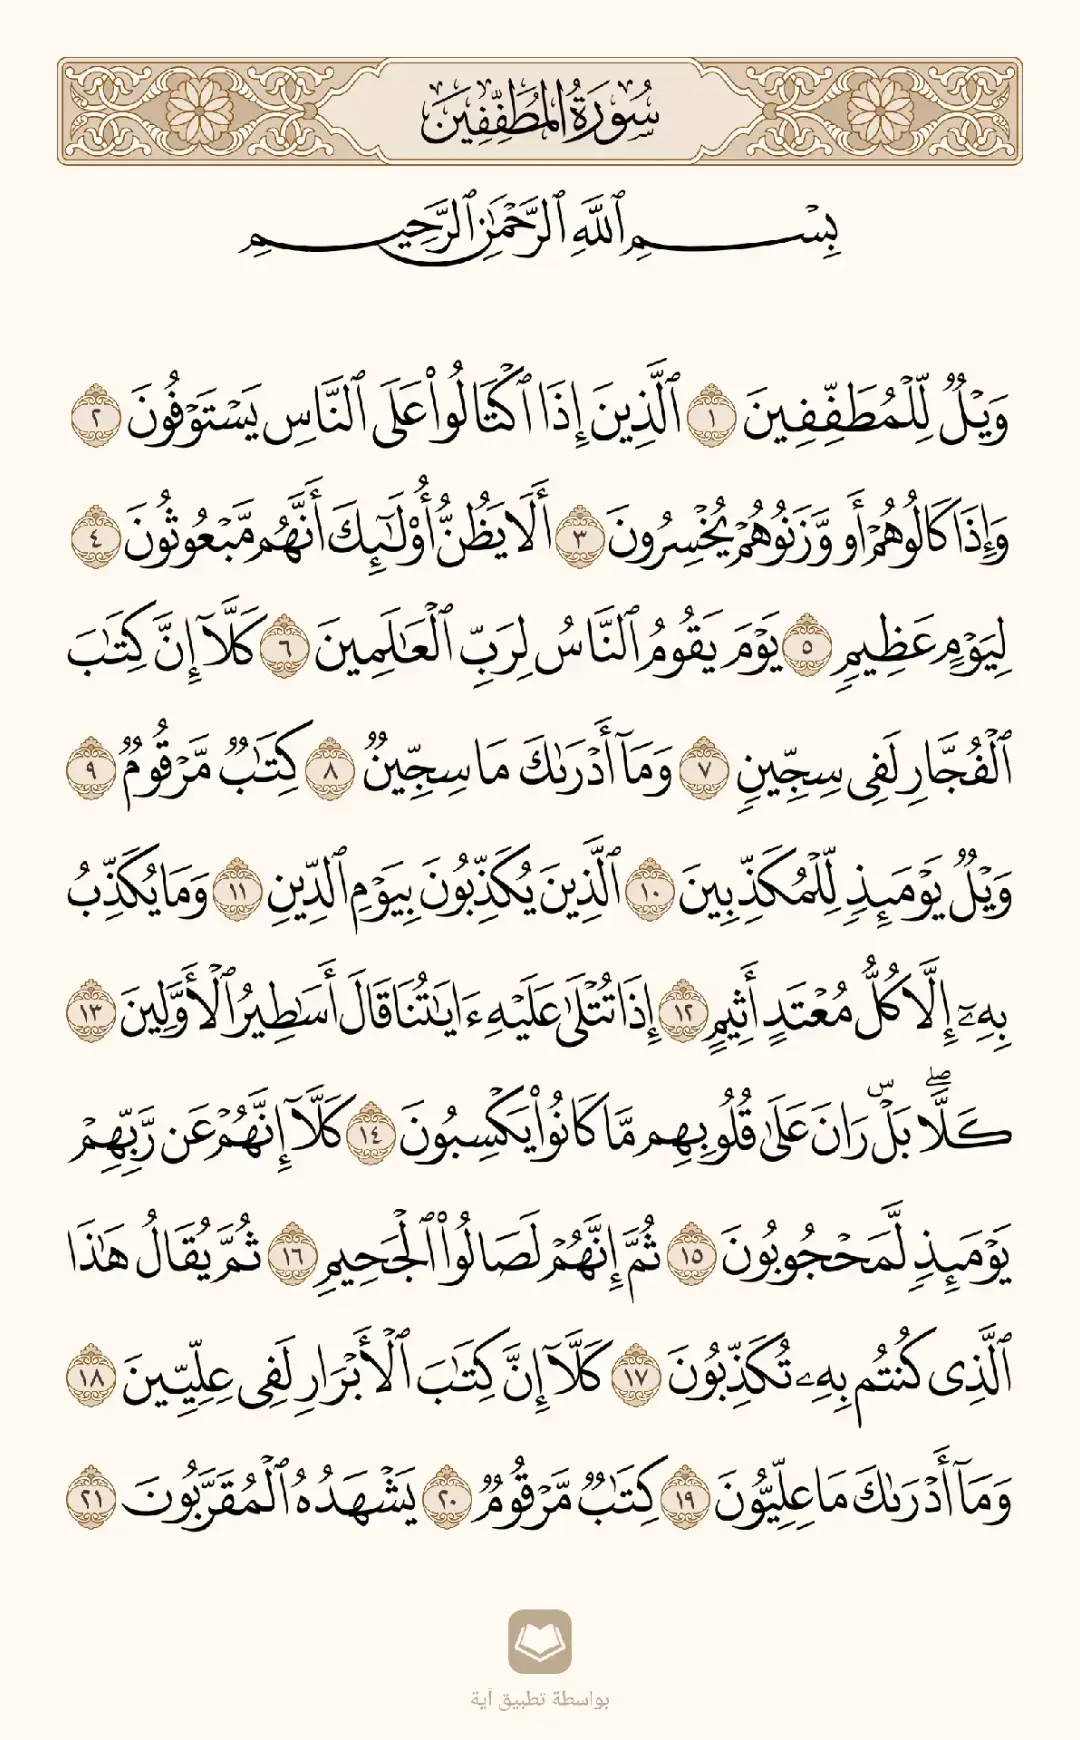 سُورَةُ المُطَفِّفِينَ
بِسْمِ ٱللَّهِ ٱلرَّحْمَٰنِ ٱلرَّحِيمِ
وَيْلٌ لِّلْمُطَفِّفِينَ ١ ٱلَّذِينَ إِذَا ٱكْتَالُوا۟ عَلَى ٱلنَّاسِ يَسْتَوْفُونَ ٢
وَإِذَا كَالُوهُمْ أَو وَّزَنُوهُمْ يُخْسِرُونَ ٣ أَلَا يَظُنُّ أُو۟لَٰٓئِكَ أَنَّهُم مَّبْعُوثُونَ ٤
لِيَوْمٍ عَظِيمٍ ٥ يَوْمَ يَقُومُ ٱلنَّاسُ لِرَبِّ ٱلْعَٰلَمِينَ ٦ كَلَّآ إِنَّ كِتَٰبَ
ٱلْفُجَّارِ لَفِى سِجِّينٍ ٧ وَمَآ أَدْرَىٰكَ مَا سِجِّينٌ ٨ كِتَٰبٌ مَّرْقُومٌ ٩
وَيْلٌ يَوْمَئِذٍ لِّلْمُكَذِّبِينَ ١٠ ٱلَّذِينَ يُكَذِّبُونَ بِيَوْمِ ٱلدِّينِ ١١ وَمَا يُكَذِّبُ
بِهِۦٓ إِلَّا كُلُّ مُعْتَدٍ أَثِيمٍ ١٢ إِذَا تُتْلَىٰ عَلَيْهِ ءَايَٰتُنَا قَالَ أَسَٰطِيرُ ٱلْأَوَّلِينَ ١٣
كَلَّاۖ بَلْۜ رَانَ عَلَىٰ قُلُوبِهِم مَّا كَانُوا۟ يَكْسِبُونَ ١٤ كَلَّآ إِنَّهُمْ عَن رَّبِّهِمْ
يَوْمَئِذٍ لَّمَحْجُوبُونَ ١٥ ثُمَّ إِنَّهُمْ لَصَالُوا۟ ٱلْجَحِيمِ ١٦ ثُمَّ يُقَالُ هَٰذَا
ٱلَّذِى كُنتُم بِهِۦ تُكَذِّبُونَ ١٧ كَلَّآ إِنَّ كِتَٰبَ ٱلْأَبْرَارِ لَفِى عِلِّيِّينَ ١٨
وَمَآ أَدْرَىٰكَ مَا عِلِّيُّونَ ١٩ كِتَٰبٌ مَّرْقُومٌ ٢٠ يَشْهَدُهُ ٱلْمُقَرَّبُونَ ٢١
بواسطة تطبيق آية